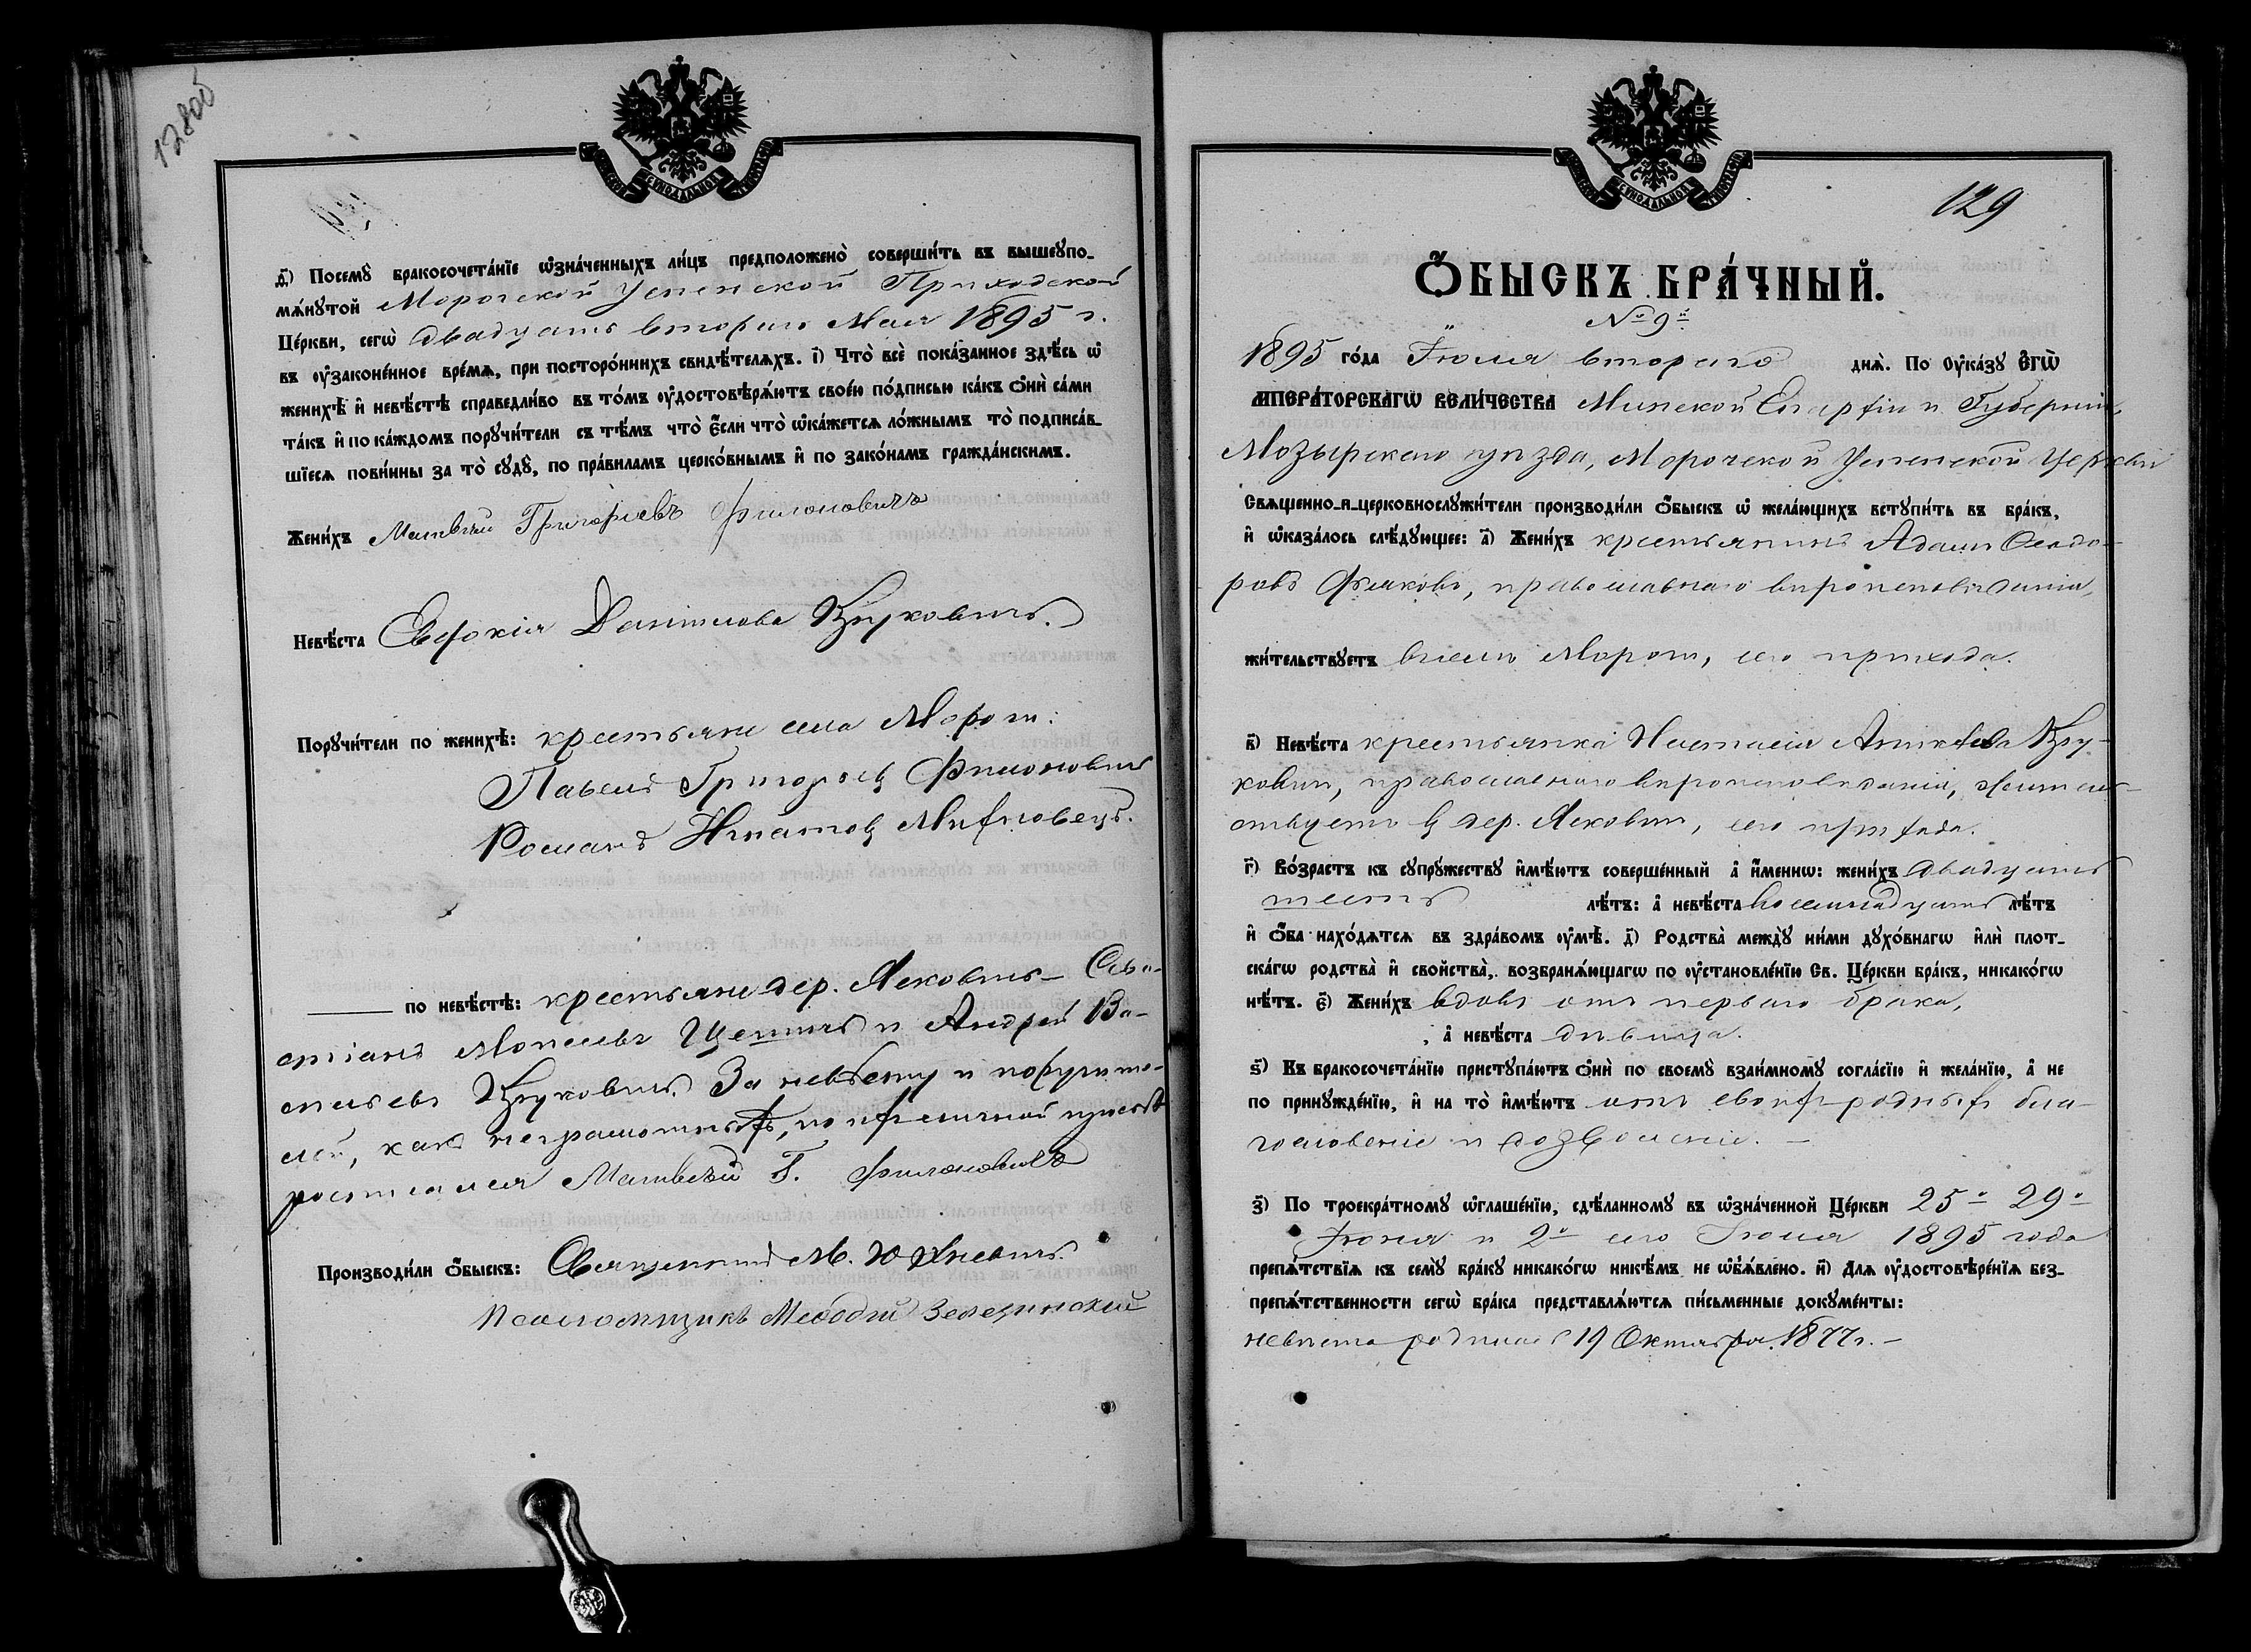 128об
Ѳ) Посемꙋ̀ бракосочета́нїе ѡ҆зна́ченныхъ ли́цъ предположено̀ соверши́ть въ вышеꙋпо-
мѧ́нꙋтой Морочской Успенской Приходской
Це́ркви, сегѡ̀ двадцать втораго Мая 1895 г.
въ ѹ҆законе́нное вре́мѧ, при посторо́ннихъ свидѣ́телѧхъ. і҃) Что̀ всѐ пока́занное здѣ́сь ѡ҆
женихѣ̀ и҆ невѣ́стѣ справедли́во въ то́мъ ѹ҆достовѣрѧ́ютъ свое́ю по́дписью ка́къ ѻ҆нѝ са́ми
та́къ и҆ по ка́ждомъ порꙋчи́тели съ тѣ́мъ что̀ є҆́сли что̀ ѡ҆ка́жетсѧ ло́жнымъ то̀ подписа́в-
шїесѧ пови́нны за то̀ сꙋдꙋ̀, по пра́виламъ церко́внымъ и҆ по зако́намъ гражда́нскимъ.
Жени́хъ Матвѣй Григорьевъ Филоновичъ
Невѣ́ста Евфокія Данилова Жуковичъ.
Порꙋчи́тели по женихѣ̀: крестьяне села Морочи:
Павелъ Григорьевъ Филоновичъ
Романъ Игнатовъ
по невѣ́стѣ: крестьяне дер. Ясковичъ Сева-
стіанъ Моисеевъ и Андрей Ва-
сильевъ Жуковичъ. За невѣсту и поручите-
лей, какъ неграмотныхъ, по ихъ личной просьбѣ
росписался Матвѣй Г. Филоновичъ
Производи́ли ѻ҆́быскъ: Священникъ М. Юхневичъ.
Псаломщикъ Меѳодій
129
Ѻ҆́быскъ бра́чный.
№ 9й
1895 го́да Іюля втораго днѧ̀. По ѹ҆ка́зꙋ є҆гѡ̀
и҆мпера́торскагѡ вели́чества Минской Епархіи и Губерніи,
Мозырскаго уѣзда, Морочской Успенской церкви
Свѧще́нно-и-церковнослꙋжи́тели производи́ли ѻ҆́быскъ ѡ҆ жела́ющихъ встꙋпи́ть въ бра́къ,
и҆ ѡ҆каза́лось слѣ́дꙋющее: а҃) Жени́хъ крестьянинъ Адамъ Ѳеодо-
ровъ православнаго вѣроисповѣданія,
жи́тельствꙋетъ въ селѣ Морочи, сего прихода.
в҃) Невѣ́ста крестьянка Настасія Жу-
ковичъ, православнаго вѣроисповѣданія, жител-
ствуетъ въ дер. Ясковичи, сего прихода.
г҃) Во́зрастъ къ сꙋпрꙋ́жествꙋ и҆мѣ́ютъ соверше́нный а҆ и҆́меннѡ: жени́хъ двадцать
шесть лѣ́тъ: а҆ невѣ́ста восемнадцать лѣ́тъ
и҆ ѻ҆́ба нахо́дѧтсѧ въ здра́вомъ ѹ҆мѣ̀. д҃) Родства̀ междꙋ̀ ни́ми дꙋхо́внагѡ и҆лѝ плот-
ска́гѡ родства̀ и҆ свойства̀, возбранѧ́ющагѡ по ѹ҆становле́нїю Св. Це́ркви бра́къ, никако́гѡ
нѣ́тъ. є҃) Жени́хъ вдовъ отъ перваго брака,
а҆ невѣ́ста дѣвица.
ѕ҃) Къ бракосочета́нїю пристꙋпа́ютъ ѻ҆нѝ по своемꙋ̀ взаи́мномꙋ согла́сїю и҆ жела́нїю, а҆ не
по принꙋжде́нїю, и҆ на то̀ и҆мѣ́ютъ отъ своихъ родныхъ бла-
гословеніе и дозволеніе. —
з҃) По троекра́тномꙋ ѡ҆глаше́нїю, сдѣ́ланномꙋ въ ѡ҆зна́ченной Це́ркви 25го 29го
Іюня и 2го сего Іюля 1895 года
препѧ́тствїѧ къ семꙋ̀ бра́кꙋ никако́гѡ никѣ́мъ не ѡ҆б̾ѧ́влено. и҃) Для ѹ҆достовѣре́нїѧ без-
препѧ́тственности сегѡ̀ бра́ка представлѧ́ютсѧ пи́сьменные докꙋме́нты:
невѣста родилась 19 Октября 1877 г. —